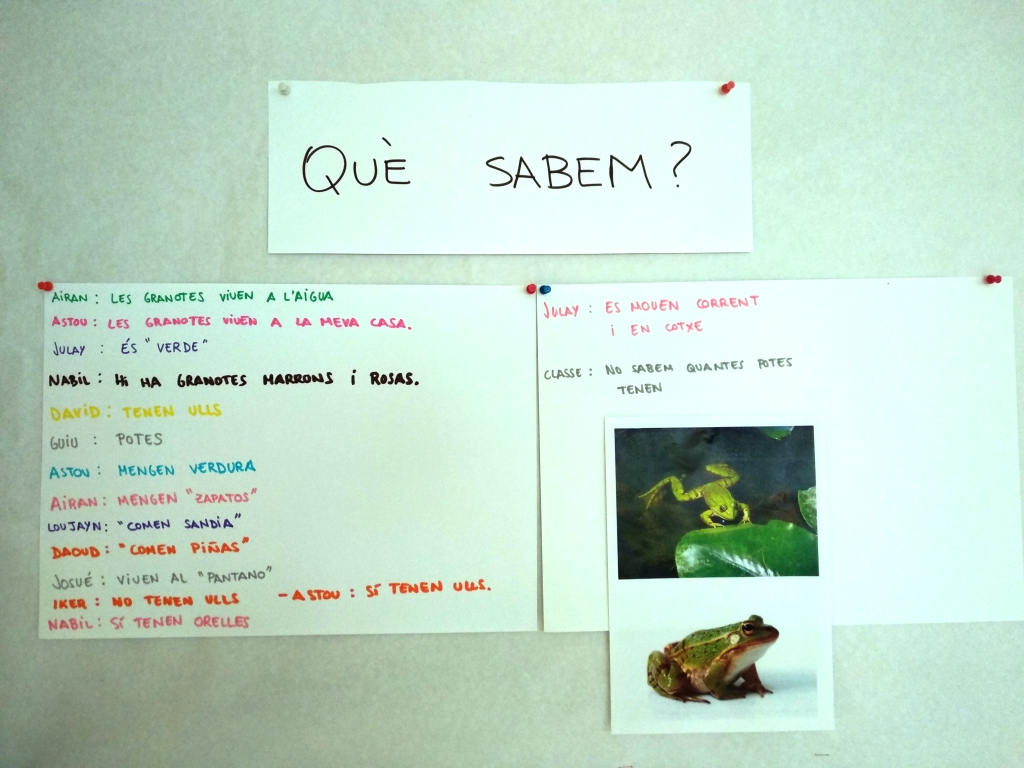 QUÈ SABEM?
AiRAN: LES GRANOTES ViUEN A L'AiGUA
ASTOU: LES GRANOTES ViUEN A LA MEVA CASA.
JULAY: ÉS "VERDE"
NABiL: Hi HA GRANOTES MARRONS i ROSAS.
DAViD: TENEN ULLS
GUiU: POTES
ASTOU: MENGEN VERDURA
AiRAN: MENGEN "ZAPATOS"
LOUJAYN: "COMEN SANDiA"
DAOUD: "COMEN PiÑAS"
JOSUÉ: ViUEN AL "PANTANO"
IKER: NO TENEN ULLS - ASTOU: SÍ TENEN ULLS.
NABiL: SÍ TENEN ORELLES
JULAY: ES MOUEN CORRENT
i EN COTXE
CLASSE: NO SABEM QUANTES POTES
TENEN